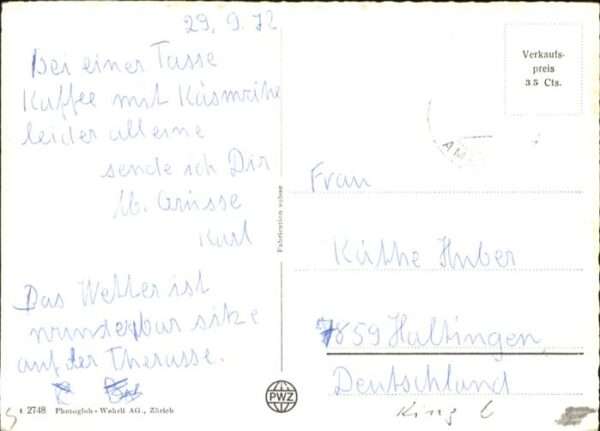 29. 9. 72
Bei einer Tasse
Kaffee mit Käsmrihe
leider alleine
sende ich Dir
lb. Grüsse
Karl
Das Wetter ist
wunderbar sitze
auf der Therasse.
Verkaufs-
preis
35 Cts.
AM
Frau
Käthe Huber
7859 Haltingen
Deutschland
Fabrication suisse
PWZ
2748 Photoglob-Wehrli AG., Zürich